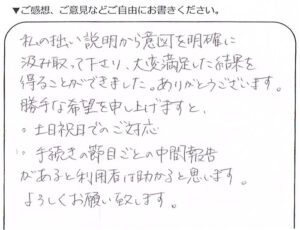 ▼ご感想、ご意見などご自由にお書きください。
私の拙い説明から意図を明確に
汲み取って下さり、大変満足した結果を
得ることができました。ありがとうございます。
勝手な希望を申し上げますと、
○土日祝日でのご対応
○手続きの節目ごとの中間報告
があると利用者は助かると思います。
よろしくお願い致します。